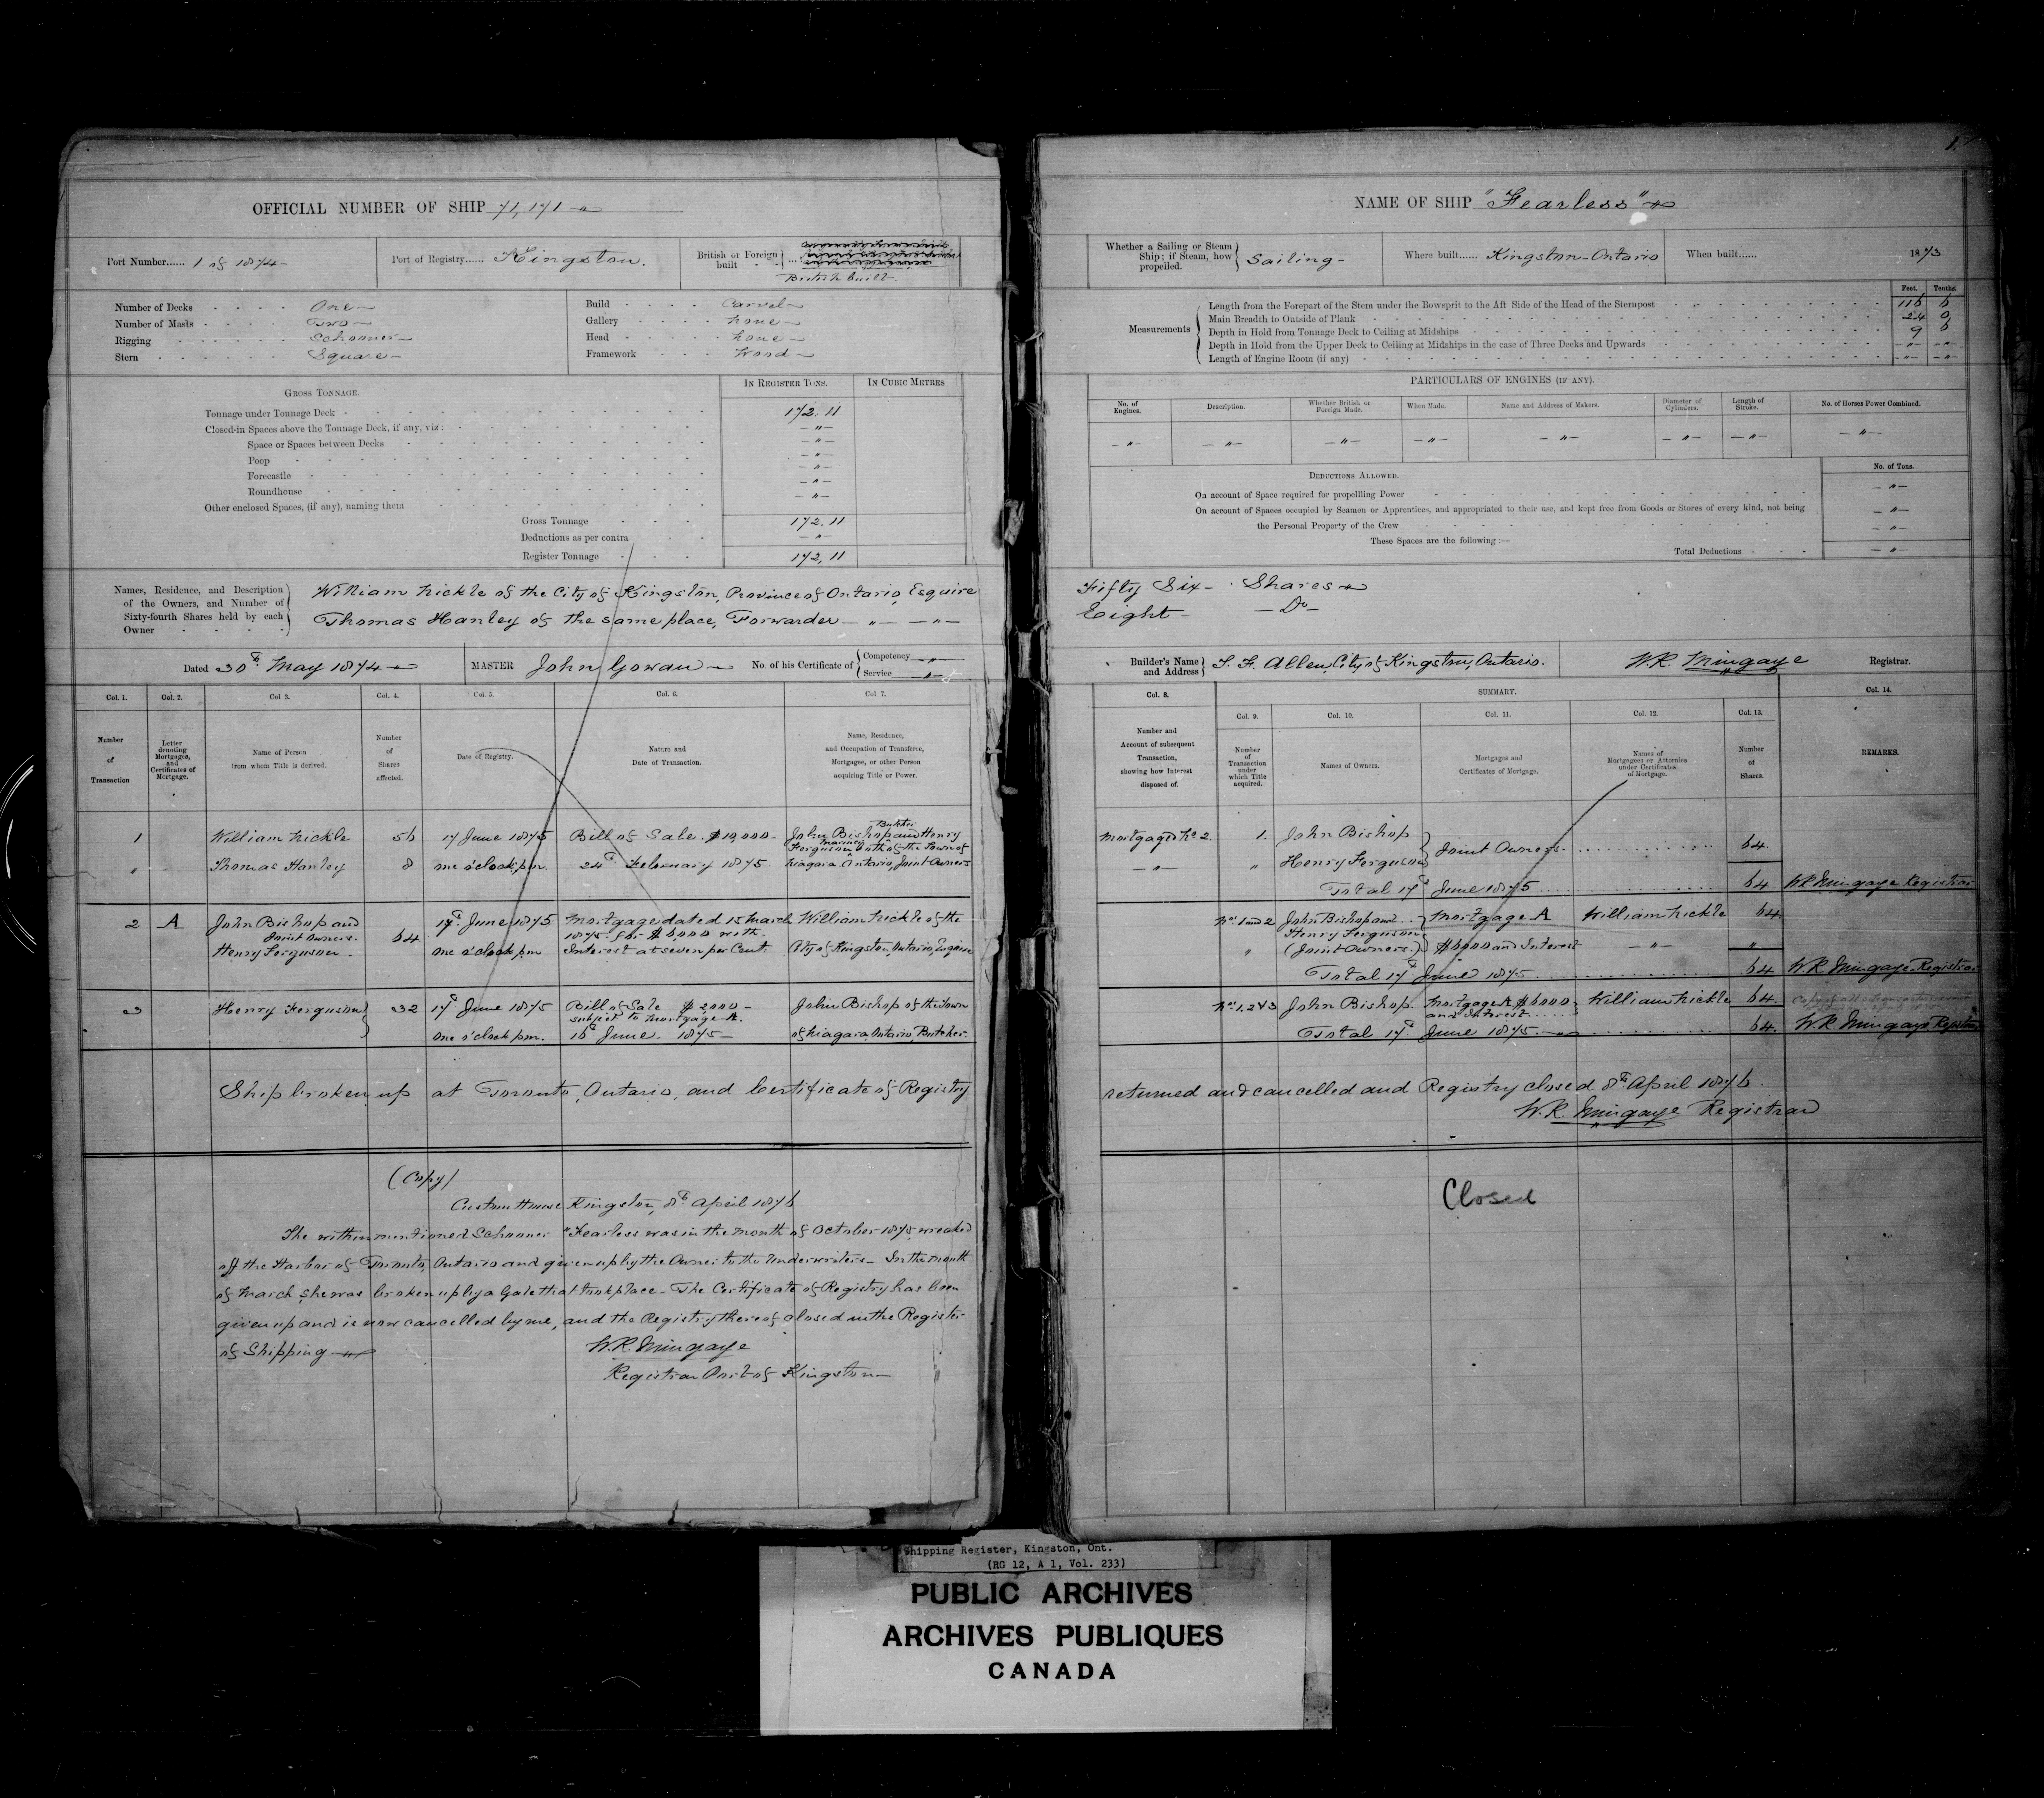 OFFICIAL NUMBER OF SHIP 71,171
Port Number...... 1 of 1874
Port of Registry...... Kingston.
British or Foreign built ...
British built
Number of Decks One
Number of Masts Two
Rigging Schooner
Stern Square
Build Carvel
Gallery none
Head none
Framework Wood
GROSS TONNAGE.
IN REGISTER TONS. IN CUBIC METRES
Tonnage under Tonnage Deck 172.11
Closed-in Spaces above the Tonnage Deck, if any, viz: — " —
Space or Spaces between Decks — " —
Poop — " —
Forecastle — " —
Roundhouse — " —
Other enclosed Spaces, (if any), naming them — " —
Gross Tonnage 172.11
Deductions as per contra — " —
Register Tonnage 172,11
Names, Residence, and Description of the Owners, and Number of Sixty-fourth Shares held by each Owner
William Nickle of the City of Kingston, Province of Ontario, Esquire
Thomas Hanley of the same place, Forwarder — " — — " —
Dated 30th May 1874
MASTER John Gowan
No. of his Certificate of { Competency — " —
Service — " —
Col. 1. Col. 2. Col 3. Col. 4. Col. 5. Col. 6. Col 7.
Number of Transaction
Letter denoting Mortgages, and Certificates of Mortgage.
Name of Person from whom Title is derived.
Number of Shares affected.
Date of Registry.
Nature and Date of Transaction.
Name, Residence, and Occupation of Transferee, Mortgagee, or other Person acquiring Title or Power.
1 William Nickle 56 17 June 1875 Bill of Sale $10,000 John Bishop Butcher and Henry
Ferguson Mariner both of the Town of
" Thomas Hanley 8 one o'clock p.m. 24th February 1875 Niagara Ontario, Joint Owners
2 A John Bishop and 17th June 1875 Mortgage dated 15 March William Nickle of the
Joint Owners. 64 1875 for $6,000 with
Henry Ferguson one o'clock p.m. Interest at seven per Cent. City of Kingston, Ontario, Esquire
3 Henry Ferguson 32 17th June 1875 Bill of Sale $2000 John Bishop of the Town
subject to Mortgage A.
one o'clock p.m. 16th June 1875 of Niagara, Ontario, Butcher.
Ship broken up at Toronto, Ontario, and Certificate of Registry
(Copy)
Custom House Kingston, 8th April 1876
The within mentioned Schooner "Fearless was in the month of October 1875, wrecked
off the Harbor of Toronto, Ontario and given up by the Owner to the Underwriters— In the month
of March she was broken up by a Gale that took place— The Certificate of Registry has been
given up and is now cancelled by me, and the Registry thereof closed in the Register
of Shipping
W.R. Mingaye
Registrar Port of Kingston
1.
NAME OF SHIP "Fearless"
Whether a Sailing or Steam Ship; if Steam, how propelled. Sailing
Where built...... Kingston–Ontario
When built...... 1873
Feet. Tenths.
Measurements
Length from the Forepart of the Stem under the Bowsprit to the Aft Side of the Head of the Sternpost 116 6
Main Breadth to Outside of Plank 24 0
Depth in Hold from Tonnage Deck to Ceiling at Midships 9 6
Depth in Hold from the Upper Deck to Ceiling at Midships in the case of Three Decks and Upwards — " — — " —
Length of Engine Room (if any) — " — — " —
PARTICULARS OF ENGINES (IF ANY).
No. of Engines. Description. Whether British or Foreign Made. When Made. Name and Address of Makers. Diameter of Cylinders. Length of Stroke. No. of Horses Power Combined.
— " — — " — — " — — " — — " — — " — — " — — " —
DEDUCTIONS ALLOWED. No. of Tons.
On account of Space required for propellling Power — " —
On account of Spaces occupied by Seamen or Apprentices, and appropriated to their use, and kept free from Goods or Stores of every kind, not being — " —
the Personal Property of the Crew — " —
These Spaces are the following :—
Total Deductions — " —
Fifty Six Shares
Eight — Do —
Builder's Name and Address T. F. Allen, City of Kingston, Ontario.
W.R. Mingaye Registrar.
Col. 8. SUMMARY. Col. 14.
Col. 9. Col. 10. Col. 11. Col. 12. Col. 13.
Number and Account of subsequent Transaction, showing how Interest disposed of.
Number of Transaction under which Title acquired.
Names of Owners.
Mortgages and Certificates of Mortgage.
Names of Mortgagees or Attornies under Certificates of Mortgage.
Number of Shares.
REMARKS.
Mortgaged No 2. 1. John Bishop
Joint Owners. 64.
— " — " Henry Ferguson
Total 17th June 1875 64 W.R. Mingaye Registrar
Nos 1 and 2 John Bishop and Mortgage A William Nickle 64
Henry Ferguson
" (Joint Owners.) $6000 and Interest — " — "
Total 17th June 1875 64 W.R. Mingaye Registrar
Nos 1.2&3 John Bishop. Mortgage A $6000 William Nickle 64.
and Interest
Total 17th June 1875 64. W.R. Mingaye Registrar
returned and cancelled and Registry closed 8th April 1876.
W.R. Mingaye Registrar
Closed
Shipping Register, Kingston, Ont.
(RG 12, A 1, Vol. 233)
PUBLIC ARCHIVES
ARCHIVES PUBLIQUES
CANADA